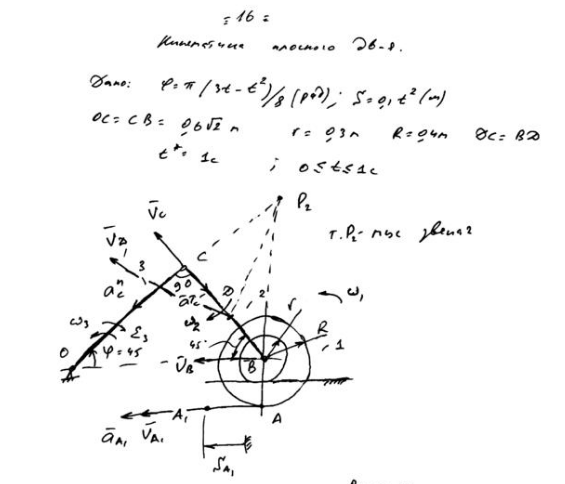 = 16 =
Кинематика плоского дв-я.
Дано: φ = π(3t - t²)/8 (рад); S = 0,1 t² (м)
OC = CB = 0,6√2 м r = 0,3 м R = 0,4 м DC = BD
t* = 1c ; 0 ≤ t ≤ 1c
P₂
V̄c
т. P₂ - мцс звена 2
V̄D₁
C
3
90
aᶜⁿ
aτc
D
2
r
ω₁
ω₃
ε₃
ω₂
R
45°
1
O
φ = 45
V̄B
B
A₁
A
āA₁ V̄A₁
SA₁